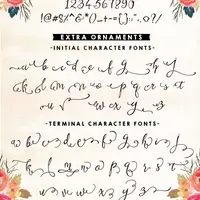 1234567890
!@#$%^&*()_+-={}:;"<>.,?/
EXTRA ORNAMENTS
-INITIAL CHARACTER FONTS-
a b c d e f g h i j
k l m n o p q r s t
u v w x y z
-TERMINAL CHARACTER FONTS-
a b c d e f g h i j
k l m n o p q r s t
u v w x y z